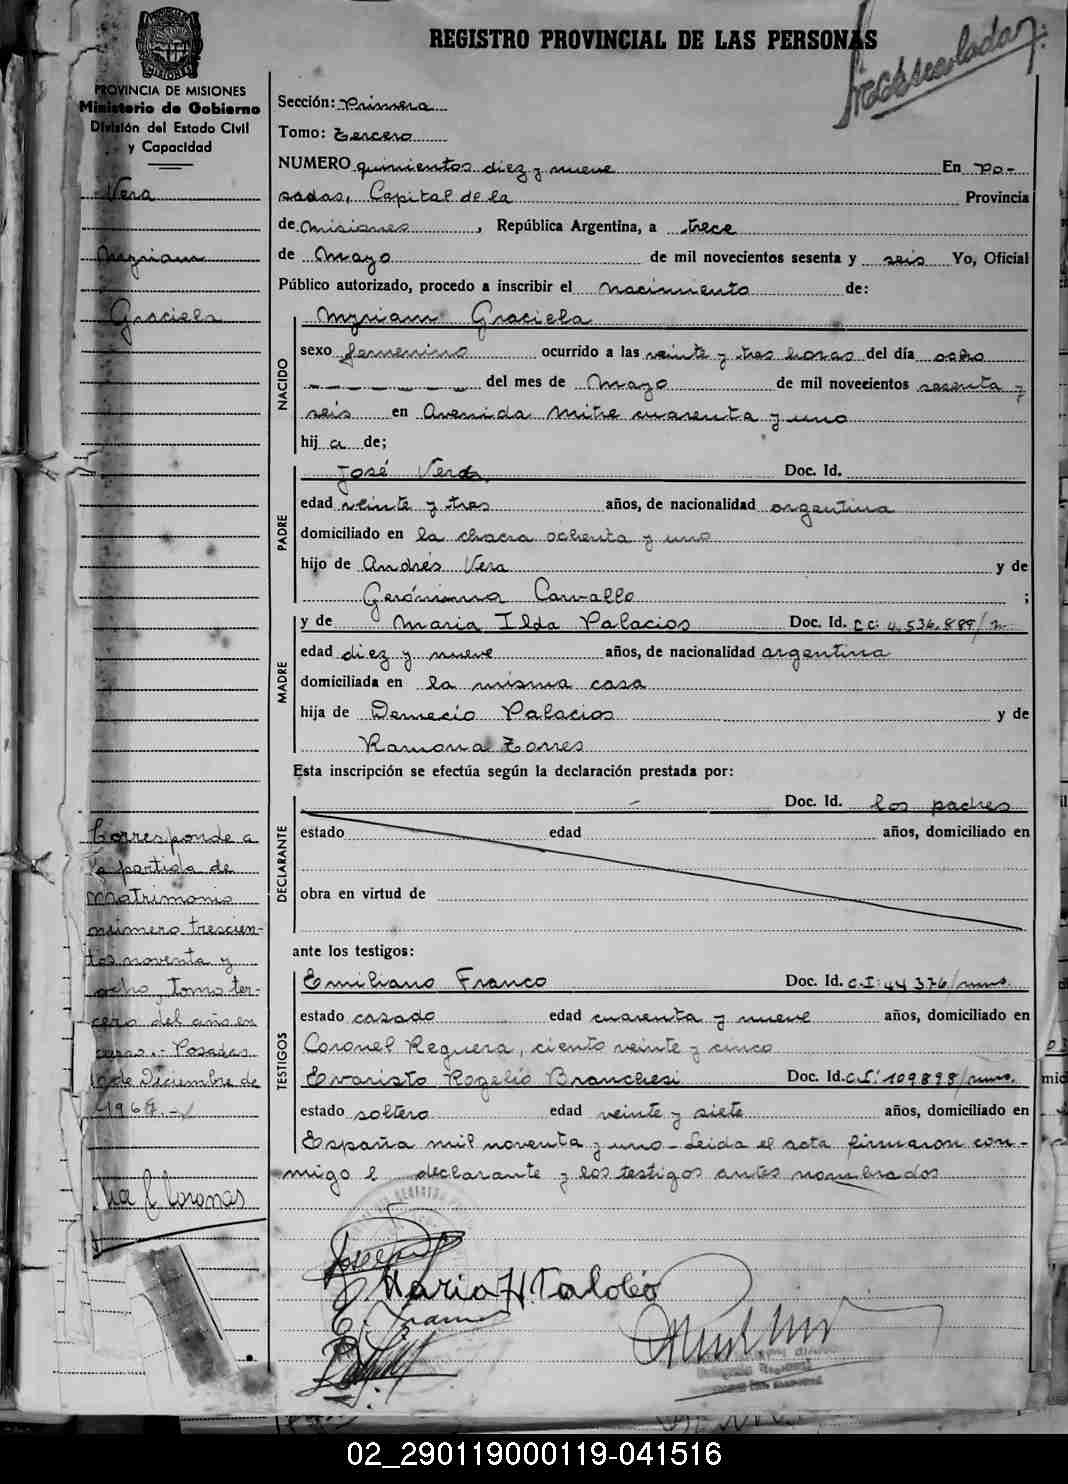 REGISTRO PROVINCIAL DE LAS PERSONAS
PROVINCIA DE MISIONES
Ministerio de Gobierno
División del Estado Civil
y Capacidad
Vera
Myriam
Graciela
Corresponde a
la partida de
matrimonio
número trescien-
tos noventa y
ocho, Tomo ter-
cero del año en
curso.- Posadas
de Diciembre de
Sección: Primera
Tomo: Tercero
NUMERO quinientos diez y nueve En Po-
sadas, Capital de la Provincia
de Misiones, República Argentina, a trece
de Mayo de mil novecientos sesenta y seis Yo, Oficial
Público autorizado, procedo a inscribir el nacimiento de:
NACIDO
Myriam Graciela
sexo femenino ocurrido a las veinte y tres horas del día ocho
del mes de Mayo de mil novecientos sesenta y
seis en Avenida Mitre cuarenta y uno
hij a de;
PADRE
José Vera Doc. Id.
edad veinte y tres años, de nacionalidad argentina
domiciliado en la chacra ochenta y uno
hijo de Andrés Vera y de
Gerónima Carvallo ;
MADRE
y de Maria Ilda Palacios Doc. Id. C.C. 4.536.889/m
edad diez y nueve años, de nacionalidad argentina
domiciliada en la misma casa
hija de Demecio Palacios y de
Ramona Torres
Esta inscripción se efectúa según la declaración prestada por:
DECLARANTE
Doc. Id. los padres
estado edad años, domiciliado en
obra en virtud de
ante los testigos:
TESTIGOS
Emiliano Franco Doc. Id. C.I: 44376/mns
estado casado edad cuarenta y nueve años, domiciliado en
Coronel Reguera, ciento veinte y cinco
Evaristo Rogelio Branchesi Doc. Id. C.I: 109898/mns.
estado soltero edad veinte y siete años, domiciliado en
España mil noventa y uno - Leida el acta firmaron con-
migo l declarante y los testigos antes nombrados
02_290119000119-041516